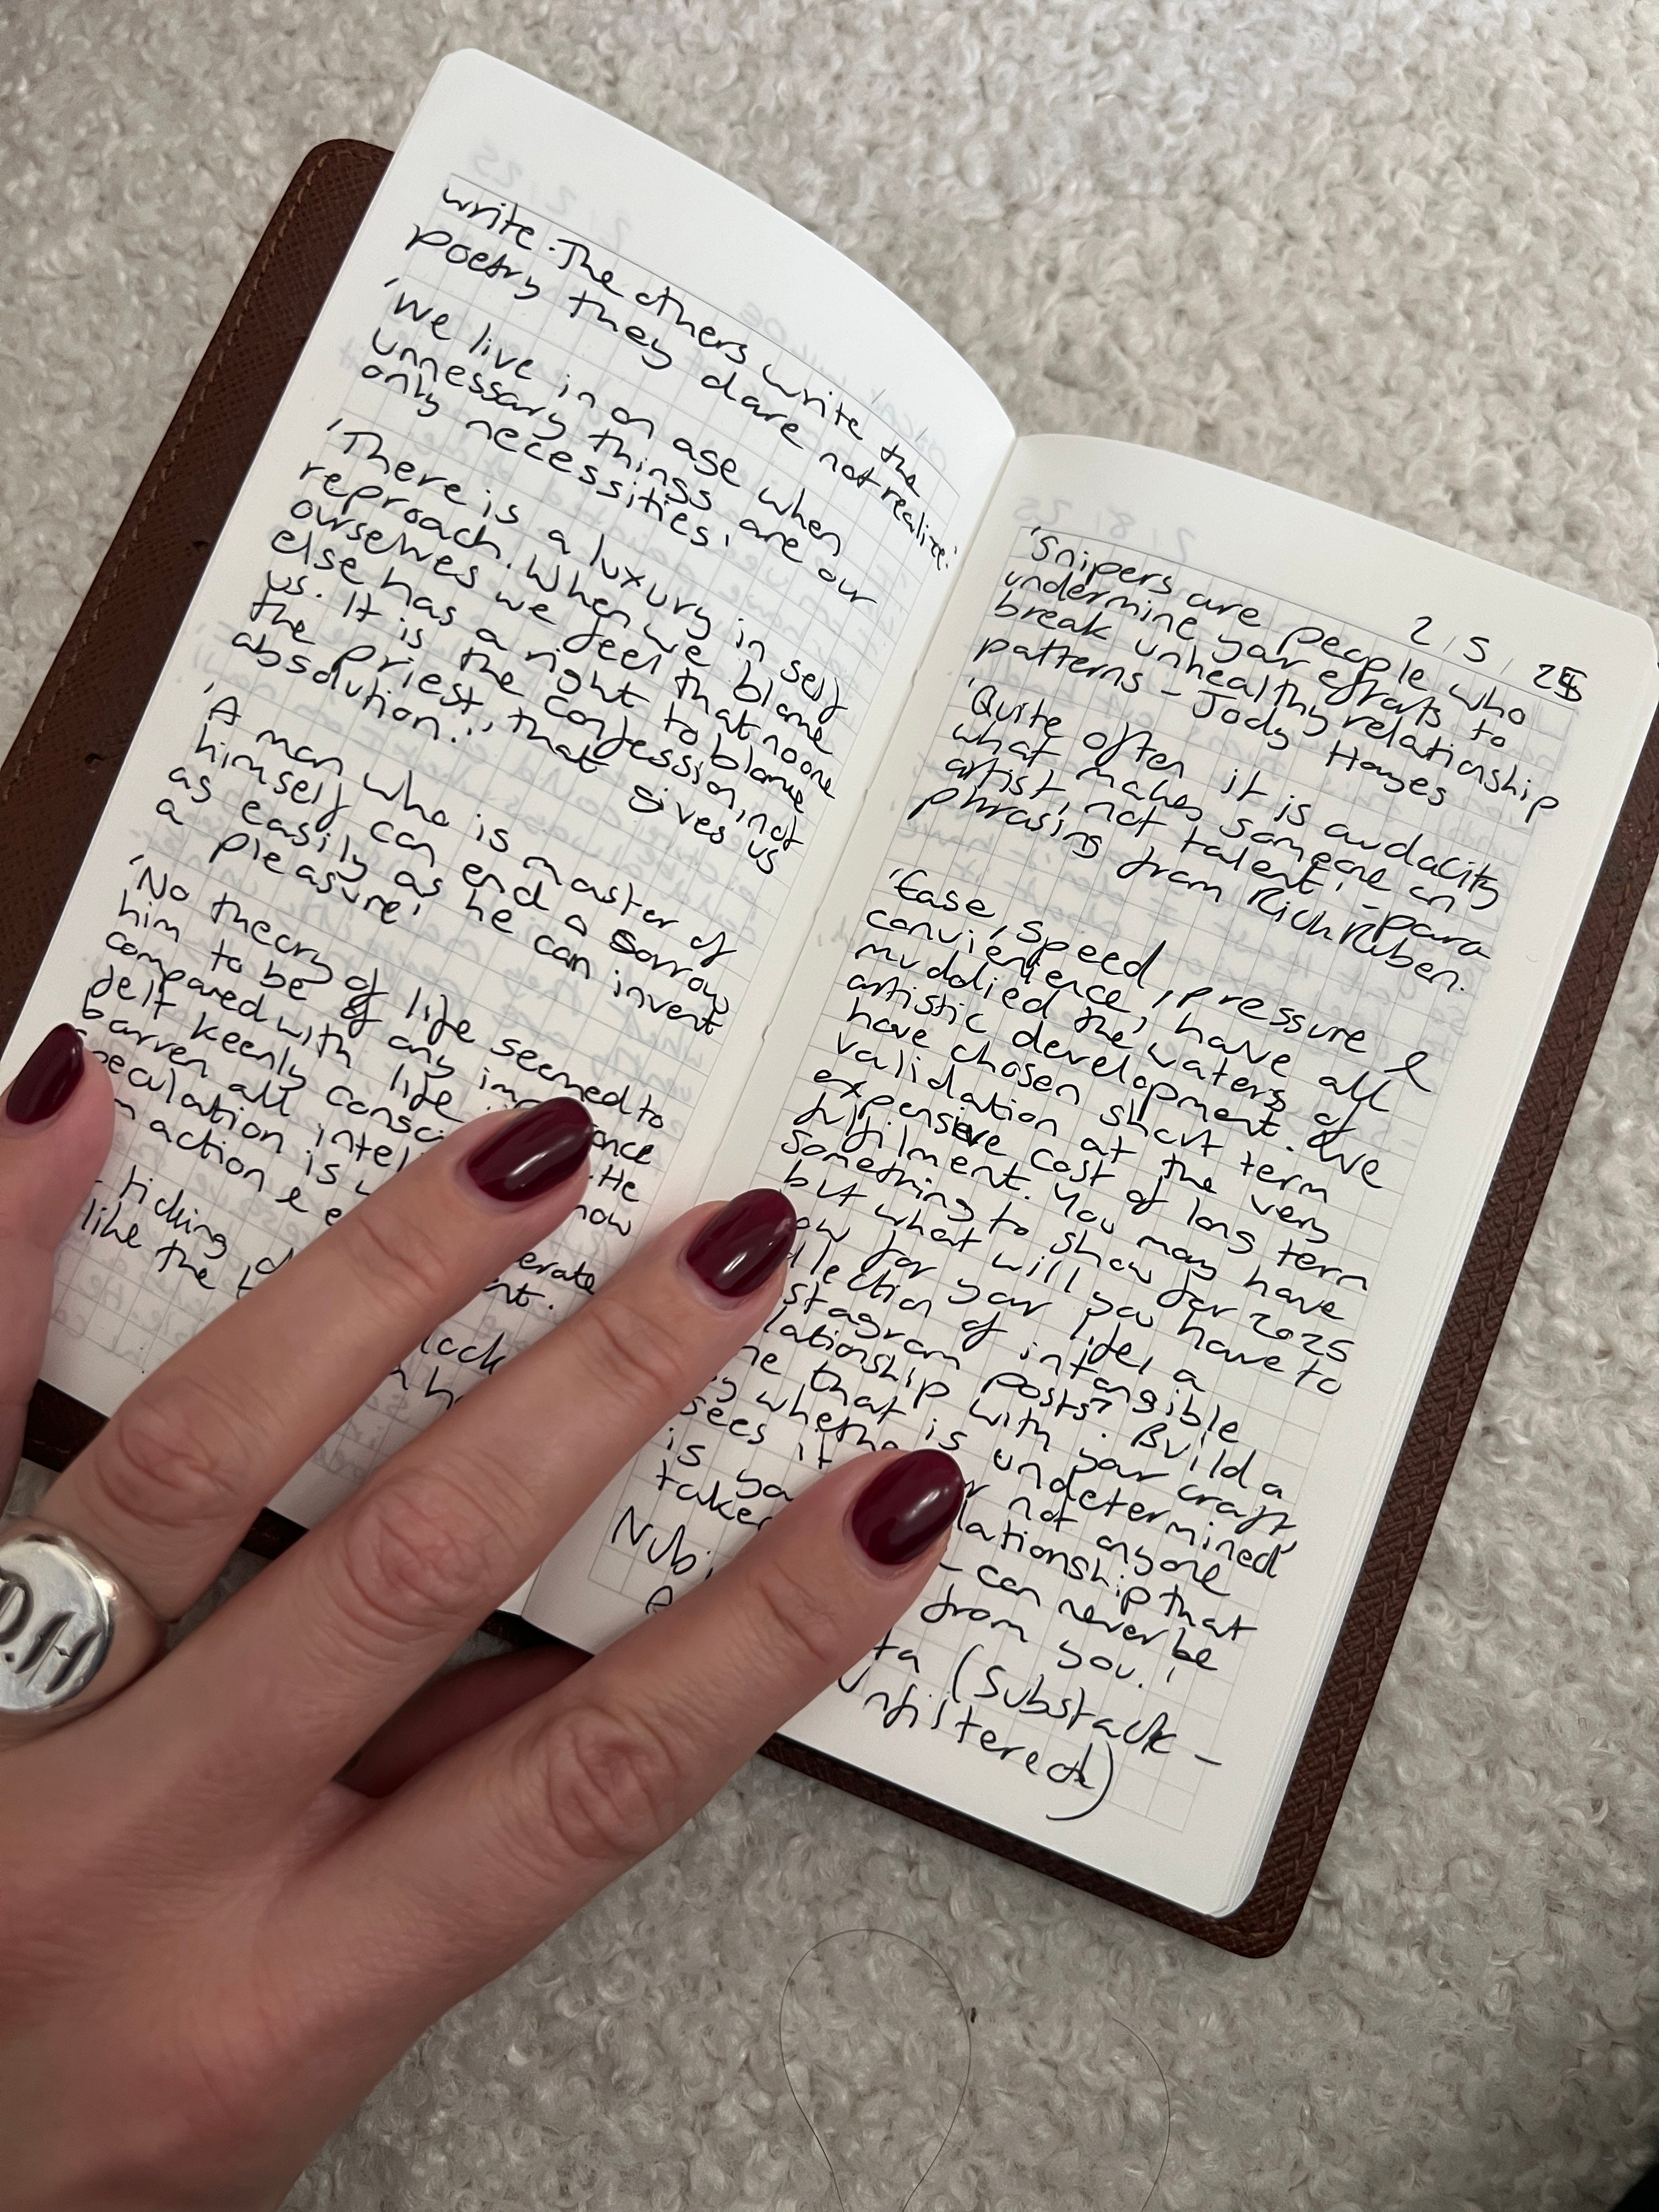 write. The others write the
poetry they dare not realize.'
'We live in an age when
unnessary things are our
only necessities.'
'There is a luxury in self
reproach. When we blame
ourselves we feel that no one
else has a right to blame
us. It is the confession, not
the priest, that gives us
absolution.'
'A man who is master of
himself can end a sorrow
as easily as he can invent
a pleasure'
'No theory of life seemed to
him to be of any
compared with life. He
felt keenly how
barren all
speculation is
action &
ticking
like the
2/5/25
'Snipers are people who
undermine your efforts to
break unhealthy relationship
patterns - Jody Hayes
'Quite often it is audacity
what makes someone an
artist, not talent' - para
phrasing from Rich Ruben.
'Ease, speed, pressure &
convienence, have all
muddied the waters of
artistic development. We
have chosen short term
validation at the very
expensive cost of long term
fulfilment. You may have
something to show for 2025
but what will you have to
for your life, a
of intangible
posts? Build a
with your craft,
that is undetermined
not anyone
sees it
is
that
- can never be
from you.'
(Substack -
P.H